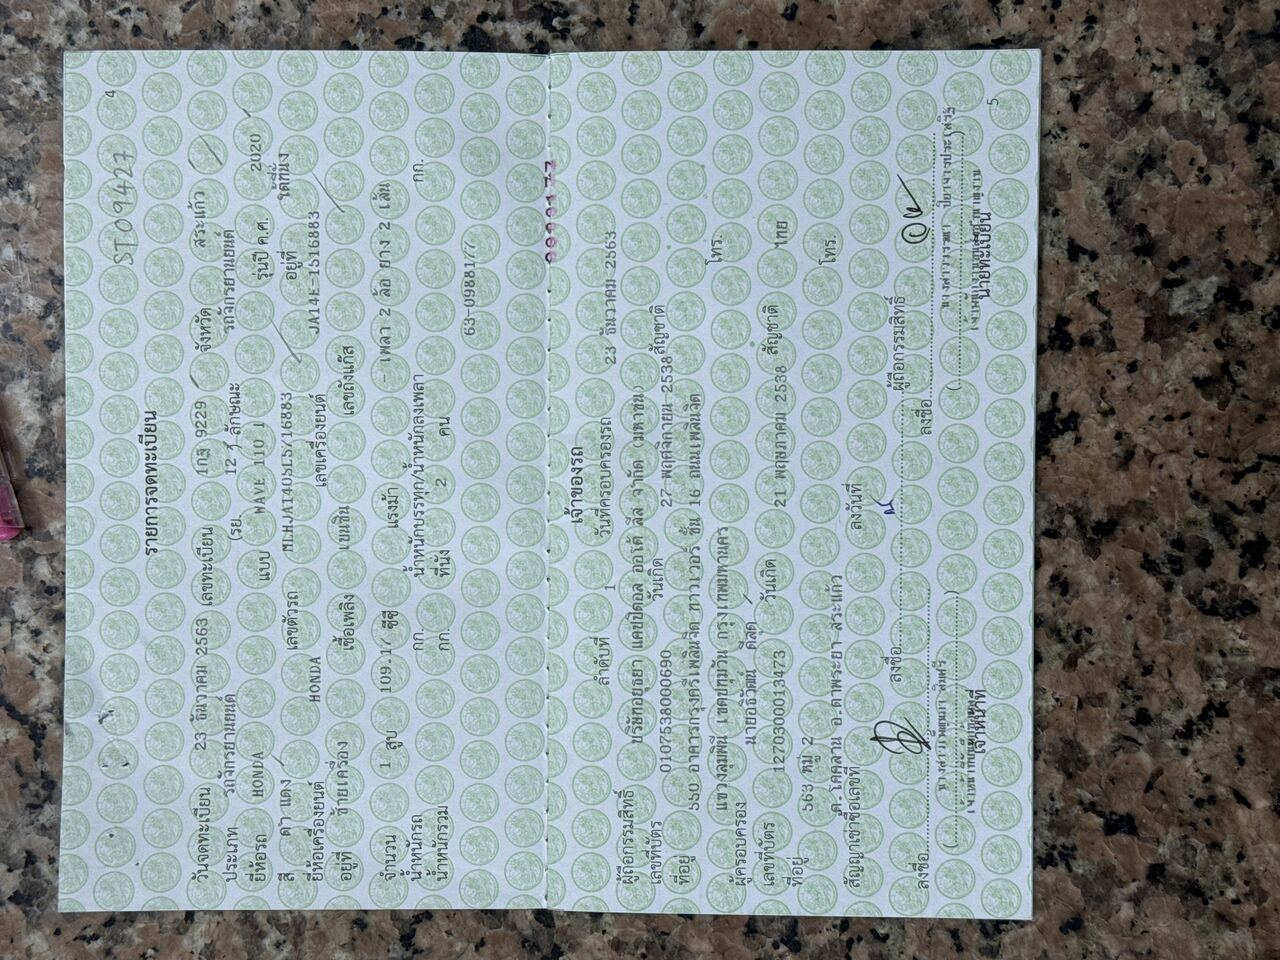 4
ST09427
รายการจดทะเบียน
วันจดทะเบียน 23 ธันวาคม 2563 เลขทะเบียน 1กฐ 9229 จังหวัด สระแก้ว
ประเภท รถจักรยานยนต์ (รย. 12 ) ลักษณะ รถจักรยานยนต์
ยี่ห้อรถ HONDA แบบ WAVE 110 I รุ่นปี ค.ศ. 2020
สี ดำ แดง เลขตัวรถ อยู่ที่ ใต้ที่นั่ง
ยี่ห้อเครื่องยนต์ HONDA เลขเครื่องยนต์ JA14E-1516883
อยู่ที่ ซ้ายเครื่อง เชื้อเพลิง เบนซิน เลขถังแก๊ส
จำนวน 1 สูบ 109.17 ซีซี แรงม้า - เพลา 2 ล้อ ยาง 2 เส้น
น้ำหนักรถ กก. น้ำหนักบรรทุก/น้ำหนักลงเพลา กก.
น้ำหนักรวม กก. ที่นั่ง 2 คน
63-0988177
เจ้าของรถ
ลำดับที่ 1 วันที่ครอบครองรถ 23 ธันวาคม 2563
ผู้ถือกรรมสิทธิ์ บริษัทอยุธยา แคปปิตอล ออโต้ ลีส จำกัด (มหาชน)
เลขที่บัตร 0107538000690 วันเกิด 27 พฤศจิกายน 2538 สัญชาติ
ที่อยู่ 550 อาคารกรุงศรีเพลินจิต ทาวเวอร์ ชั้น 16 ถนนเพลินจิต
แขวงลุมพินี เขตปทุมวัน กรุงเทพมหานคร โทร.
ผู้ครอบครอง
เลขที่บัตร 1270300013473 วันเกิด 21 พฤษภาคม 2538 สัญชาติ ไทย
ที่อยู่ 563 หมู่ 2
ต.โคคลาน อ.ตาพระยา สระแก้ว โทร.
สัญญาเช่าซื้อเลขที่ ลงวันที่
ลงชื่อ ผู้ถือกรรมสิทธิ์
ลงชื่อ ลงชื่อ
เจ้าหน้าที่ นายทะเบียน
5